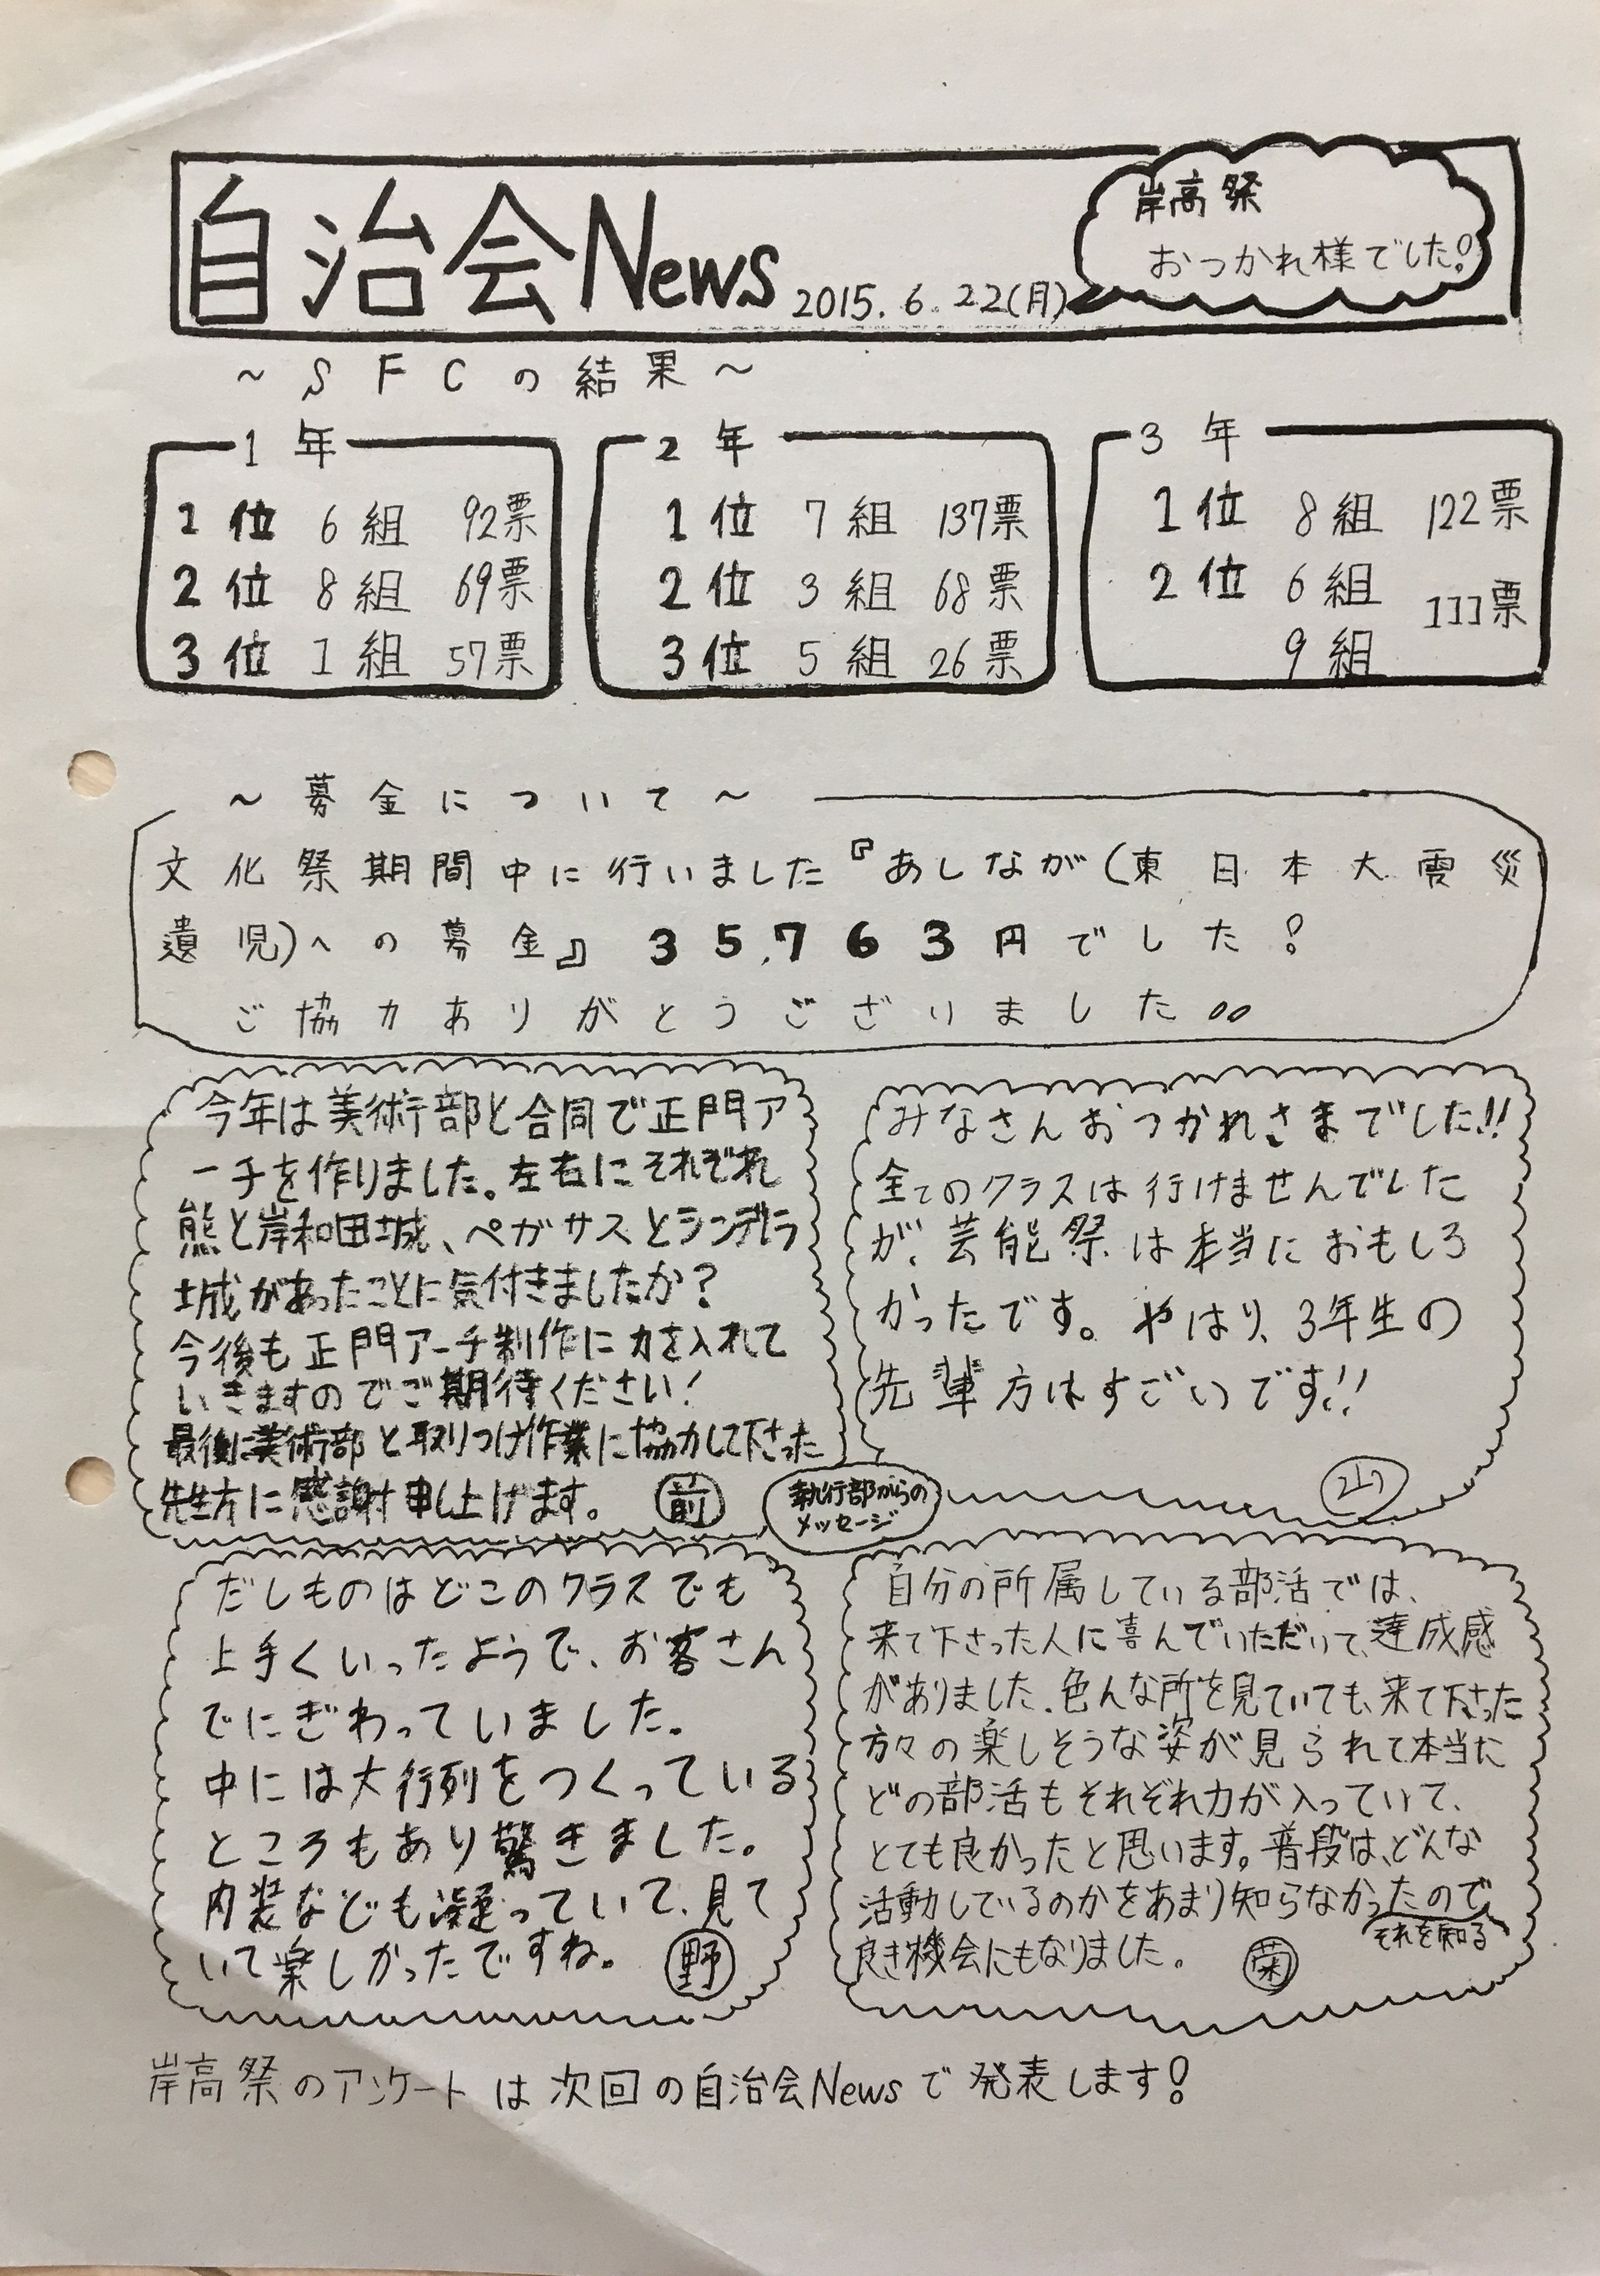 自治会News 2015.6.22(月)
岸高祭
おつかれ様でした!
~SFCの結果~
1年
1位 6組 92票
2位 8組 69票
3位 1組 57票
2年
1位 7組 137票
2位 3組 68票
3位 5組 26票
3年
1位 8組 122票
2位 6組 111票
9組
~募金について~
文化祭期間中に行いました『あしなが(東日本大震災
遺児)への募金』35,763円でした!
ご協力ありがとうございました。。
今年は美術部と合同で正門ア
ーチを作りました。左右にそれぞれ
熊と岸和田城、ペガサスとシンデレラ
城があったことに気付きましたか?
今後も正門アーチ制作に力を入れて
いきますのでご期待ください!
最後に美術部と取りつけ作業に協力して下さった
先生方に感謝申し上げます。 前
みなさんおつかれさまでした!!
全てのクラスは行けませんでした
が、芸能祭は本当におもしろ
かったです。やはり、3年生の
先輩方はすごいです!!
山
執行部からの
メッセージ
だしものはどこのクラスでも
上手くいったようで、お客さん
でにぎわっていました。
中には大行列をつくっている
ところもあり驚きました。
内装なども凝っていて、見て
いて楽しかったですね。 野
自分の所属している部活では、
来て下さった人に喜んでいただいて、達成感
がありました。色んな所を見ていても、来て下さった
方々の楽しそうな姿が見られて本当に
どの部活もそれぞれ力が入っていて、
とても良かったと思います。普段は、どんな
活動しているのかをあまり知らなかったので
それを知る
良き機会にもなりました。 菊
岸高祭のアンケートは次回の自治会Newsで発表します!